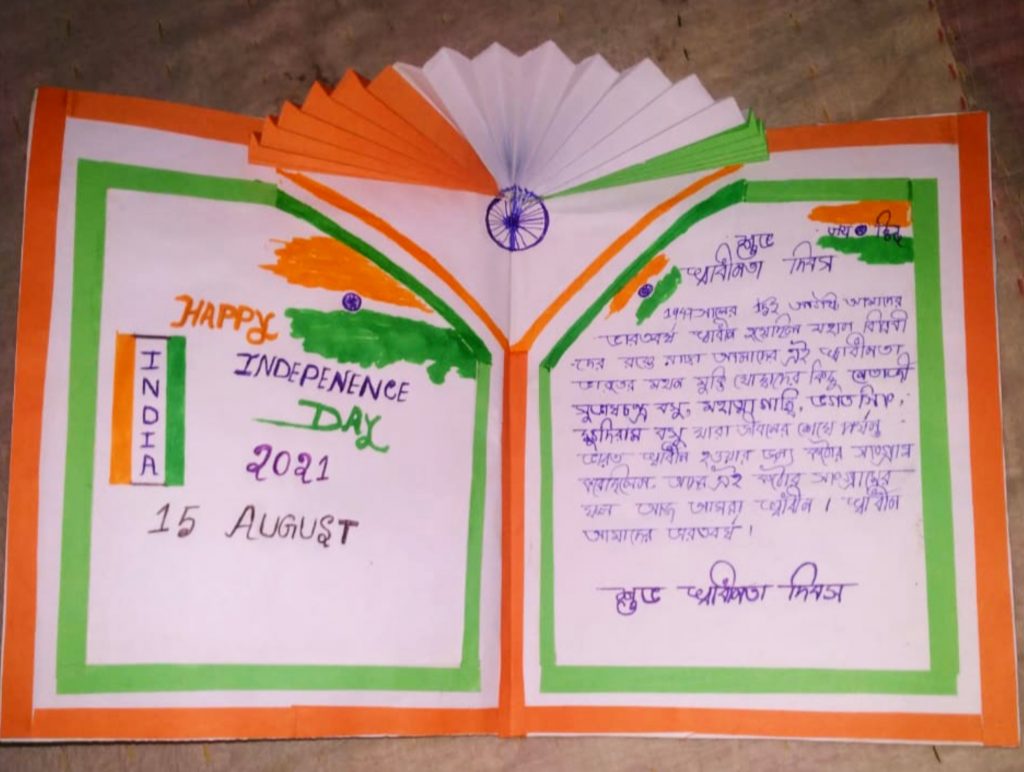 HAPPY
INDEPENENCE
DAY
2021
15 AUGUST
INDIA
জয় হিন্দ
শুভ
স্বাধীনতা দিবস
1947 সালের 15ই আগস্ট আমাদের
ভারতবর্ষ স্বাধীন হয়েছিল মহান বিপ্লবী
দের রক্তে রাঙা আমাদের এই স্বাধীনতা
ভারতের মহান মুক্তি যোদ্ধাদের কিছু নেতাজী
সুভাষচন্দ্র বসু, মহাত্মা গান্ধি, ভগত সিং,
ক্ষুদিরাম বসু যারা জীবনের শেষে পর্যন্ত
ভারত স্বাধীন হওয়ার জন্য কঠোর সংগ্রাম
করেছিলেন এই কঠোর সংগ্রামের
ফল আজ আমরা স্বাধীন । স্বাধীন
আমাদের ভারতবর্ষ ।
শুভ স্বাধীনতা দিবস